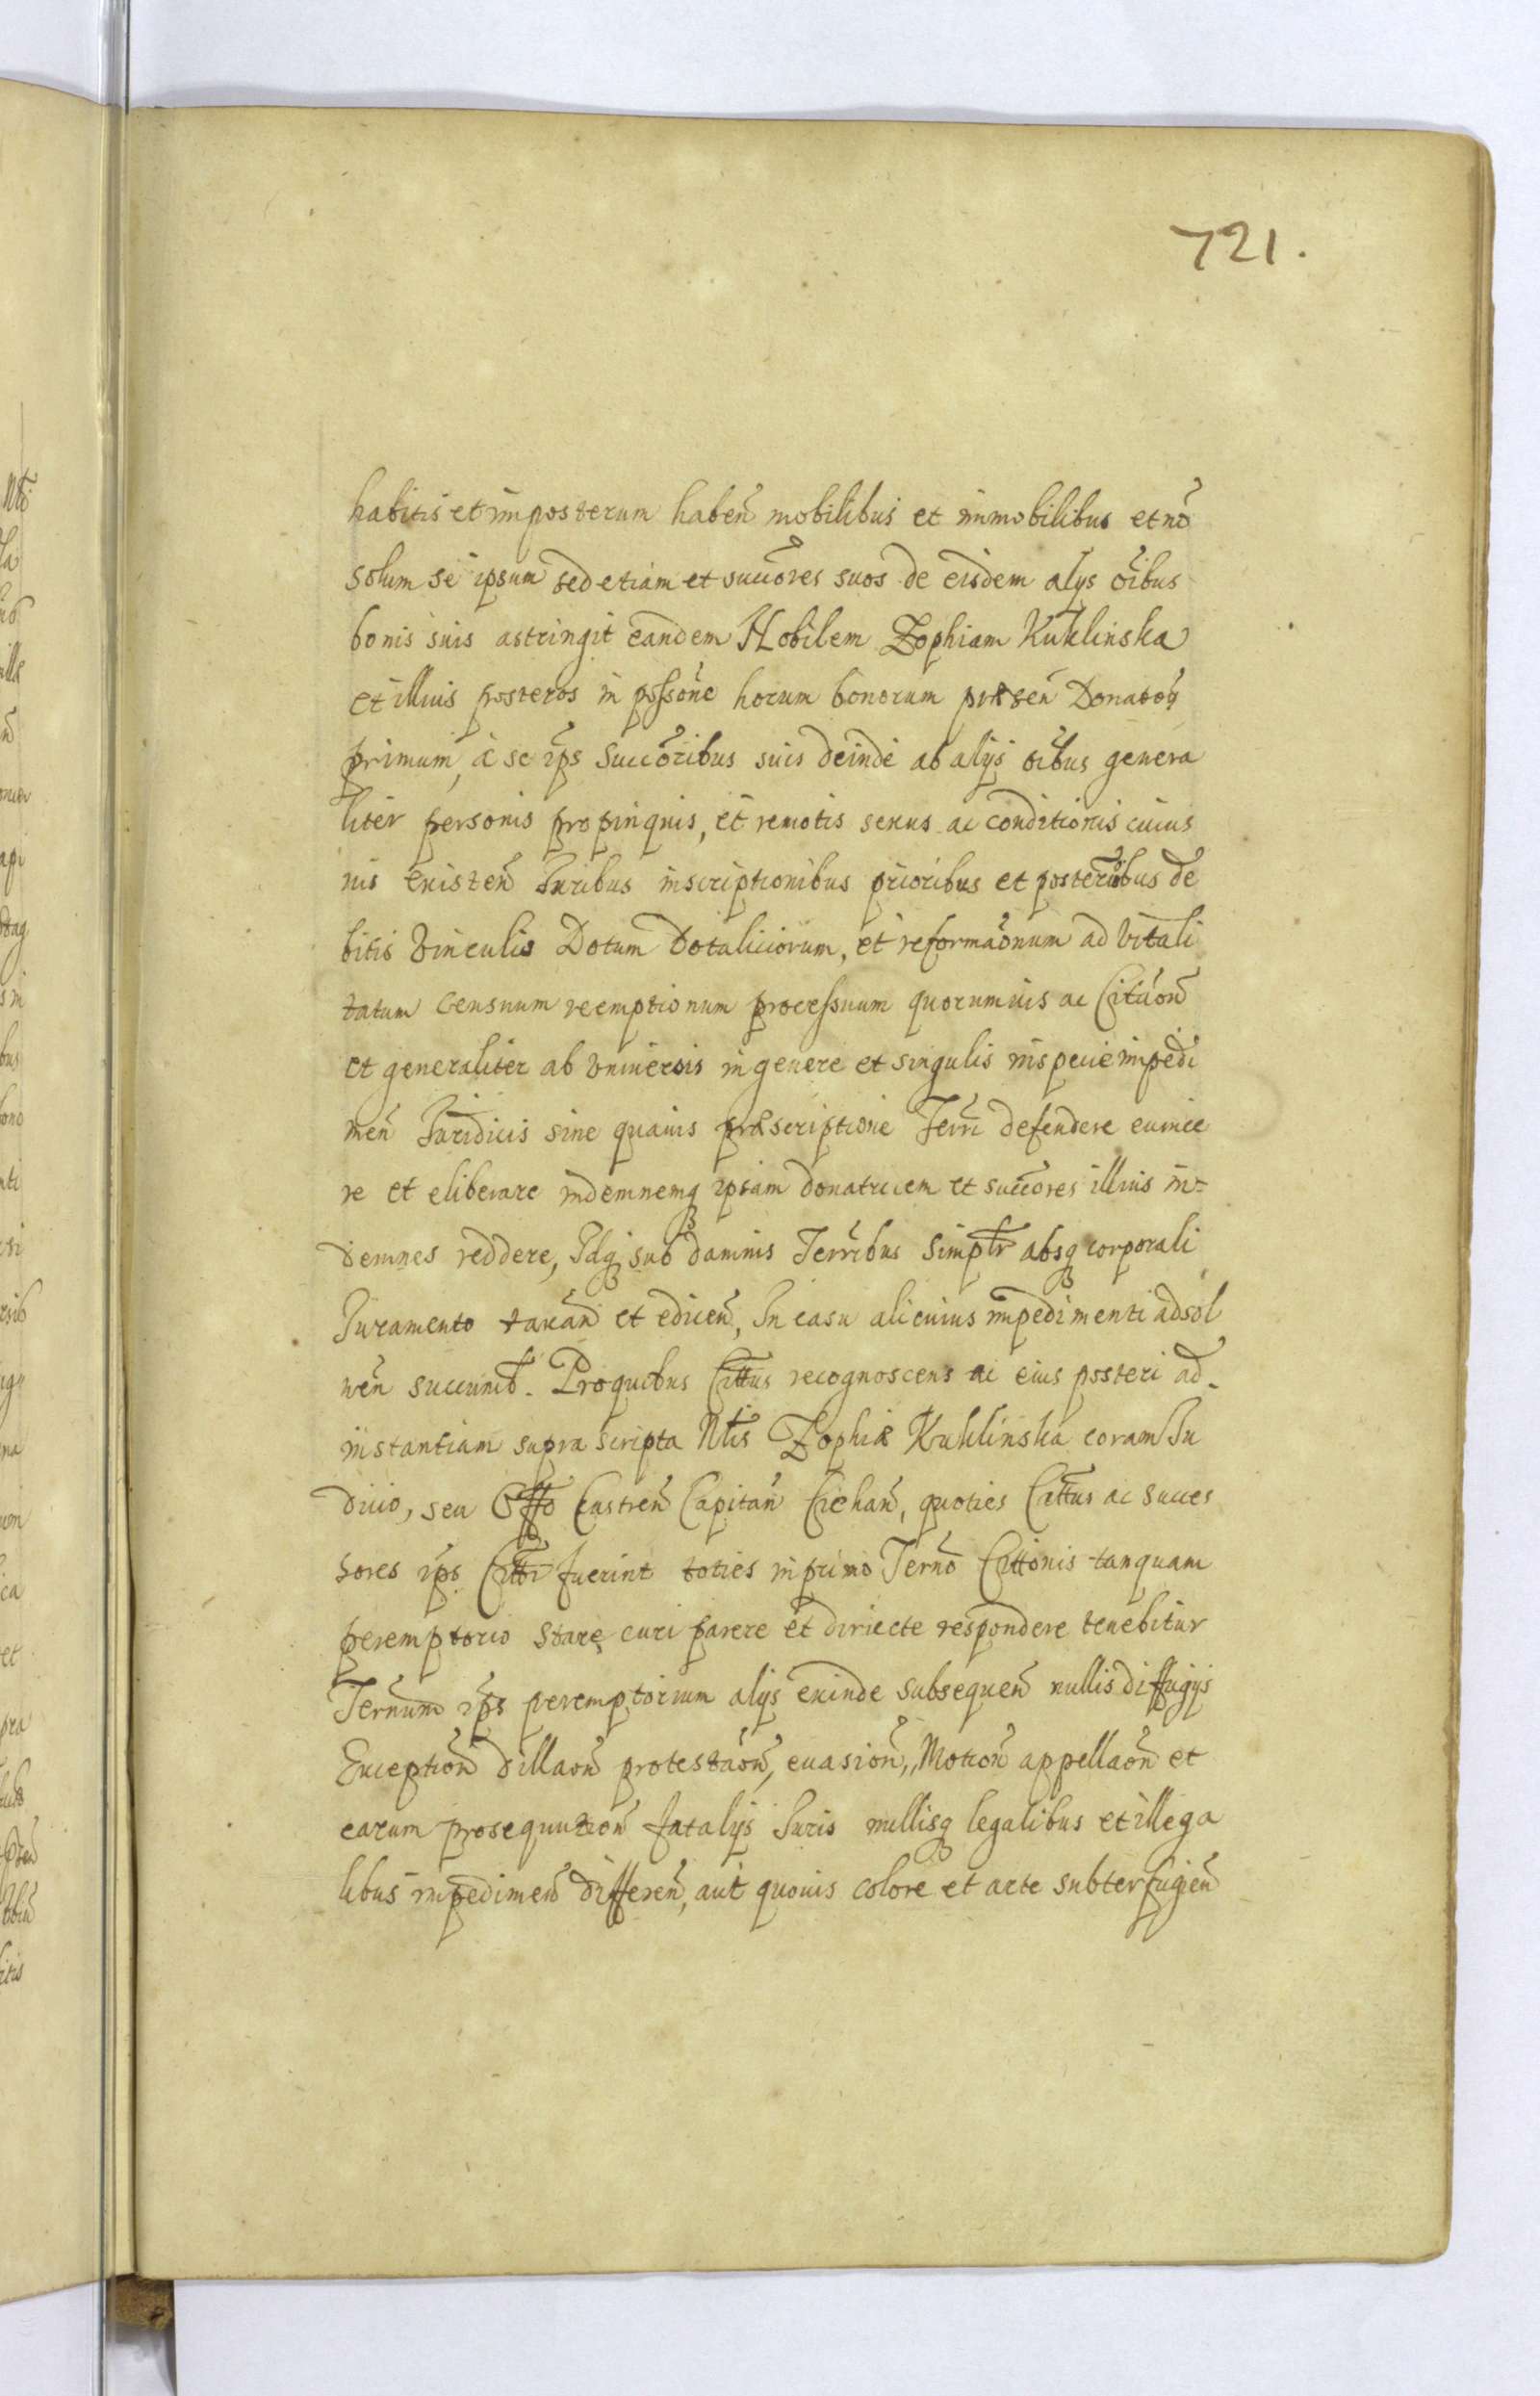 721.
habitis et imposterum haben̄ mobilibus et immobilibus et nō
solum se ipsum sed etiam et succōres suos de eisdem alys oībus
bonis suis astringit eandem Nobilem Zophiam Kuklinska
et illius posteros in possōne horum bonorum præsen̄ Donatoꝝ
primum, à se ip̄s Succōribus suis deinde ab alijs oībus genera
liter personis propinquis, et remotis sexus ac conditionis cuius
uis existen̄ Juribus inscriptionibus prioribus et posterioribus de
bitis Vinculis Dotum Dotaliciorum, et reformāonum aduitali
tatum censuum reemptionum processuum quorumuis ac Citāon̄
et generaliter ab Vniuersis in genere et singulis in specie impedi
men̄ Juridicis sine quauis præscriptione Terrī defendere euince
re et eliberare indemnemq ipsam donatricem et succōres illius in=
demnes reddere, Idq sub damnis Terrībus simplr̄ absq corporali
Juramento taxan̄ et edicen̄, In casu alicuius impedimenti adsol
uen̄ succumb̄. Pro quibus Citt̄us recognoscens ac eius posteri ad
instantiam supra scripta Nl̄is Zophiæ Kuklinska coram Ju
dicio, seu Off̄o Castren̄ Capitan̄ Ciehan̄, quoties Citt̄us ac succes
sores ip̄s Citt̄i fuerint toties in primo Ternō Citt̄onis tanquam
peremptorio stare, curi parere et diriecte respondere tenebitur
Ternum ip̄s peremptorium alijs exinde subsequen̄ nullis diffugijs
Exception̄ dillaon̄ protestāon̄, euasion̄, Motion̄ appellaon̄ et
earum prosequution̄ fatalijs Juris nullisq legalibus et illega
libus impedimen̄ differen̄, aut quouis colore et arte subterfugien̄